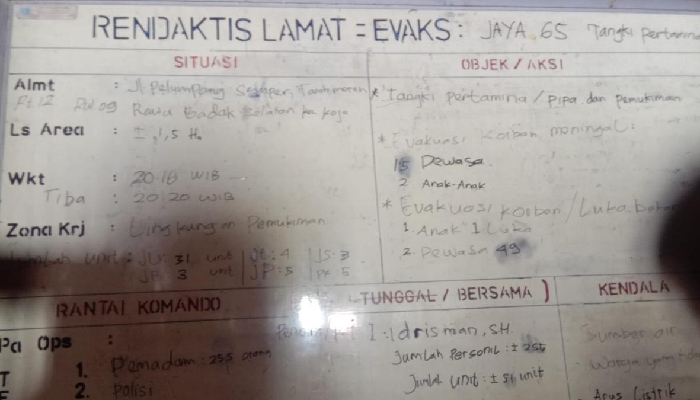 RENDAKTIS LAMAT = EVAKS : JAYA 65 Tangki Pertamina
SITUASI
Almt : Jl Pelumpang Semper, Tanah merah
Rt 12 Rw 09 Rawa Badak Selatan kec koja
Ls Area : ± 1,5 Ha
Wkt : 20.18 WIB
Tiba : 20.20 WIB
Zona Krj : Lingkungan Pemukiman
Jumlah unit : JU: 31 unit | Jt: 4 | JS: 3
JR 3 unit | JP: 5 | PK 5
OBJEK / AKSI
* Tangki Pertamina / Pipa dan pemukiman
* Evakuasi korban meningal :
15 Dewasa
2 Anak-Anak
* Evakuasi korban / Luka bakar
1. Anak 1 Luka
2. Dewasa 49
RANTAI KOMANDO
(TUNGGAL / BERSAMA)
KENDALA
Pa Ops :
I : Idrisman, SH.
1. Pemadam : 255 orang
2. Polisi
Jumlah Personil : ± 255
Jumlah Unit : ± 51 unit
Sumber air
Warga yang
Arus Listrik